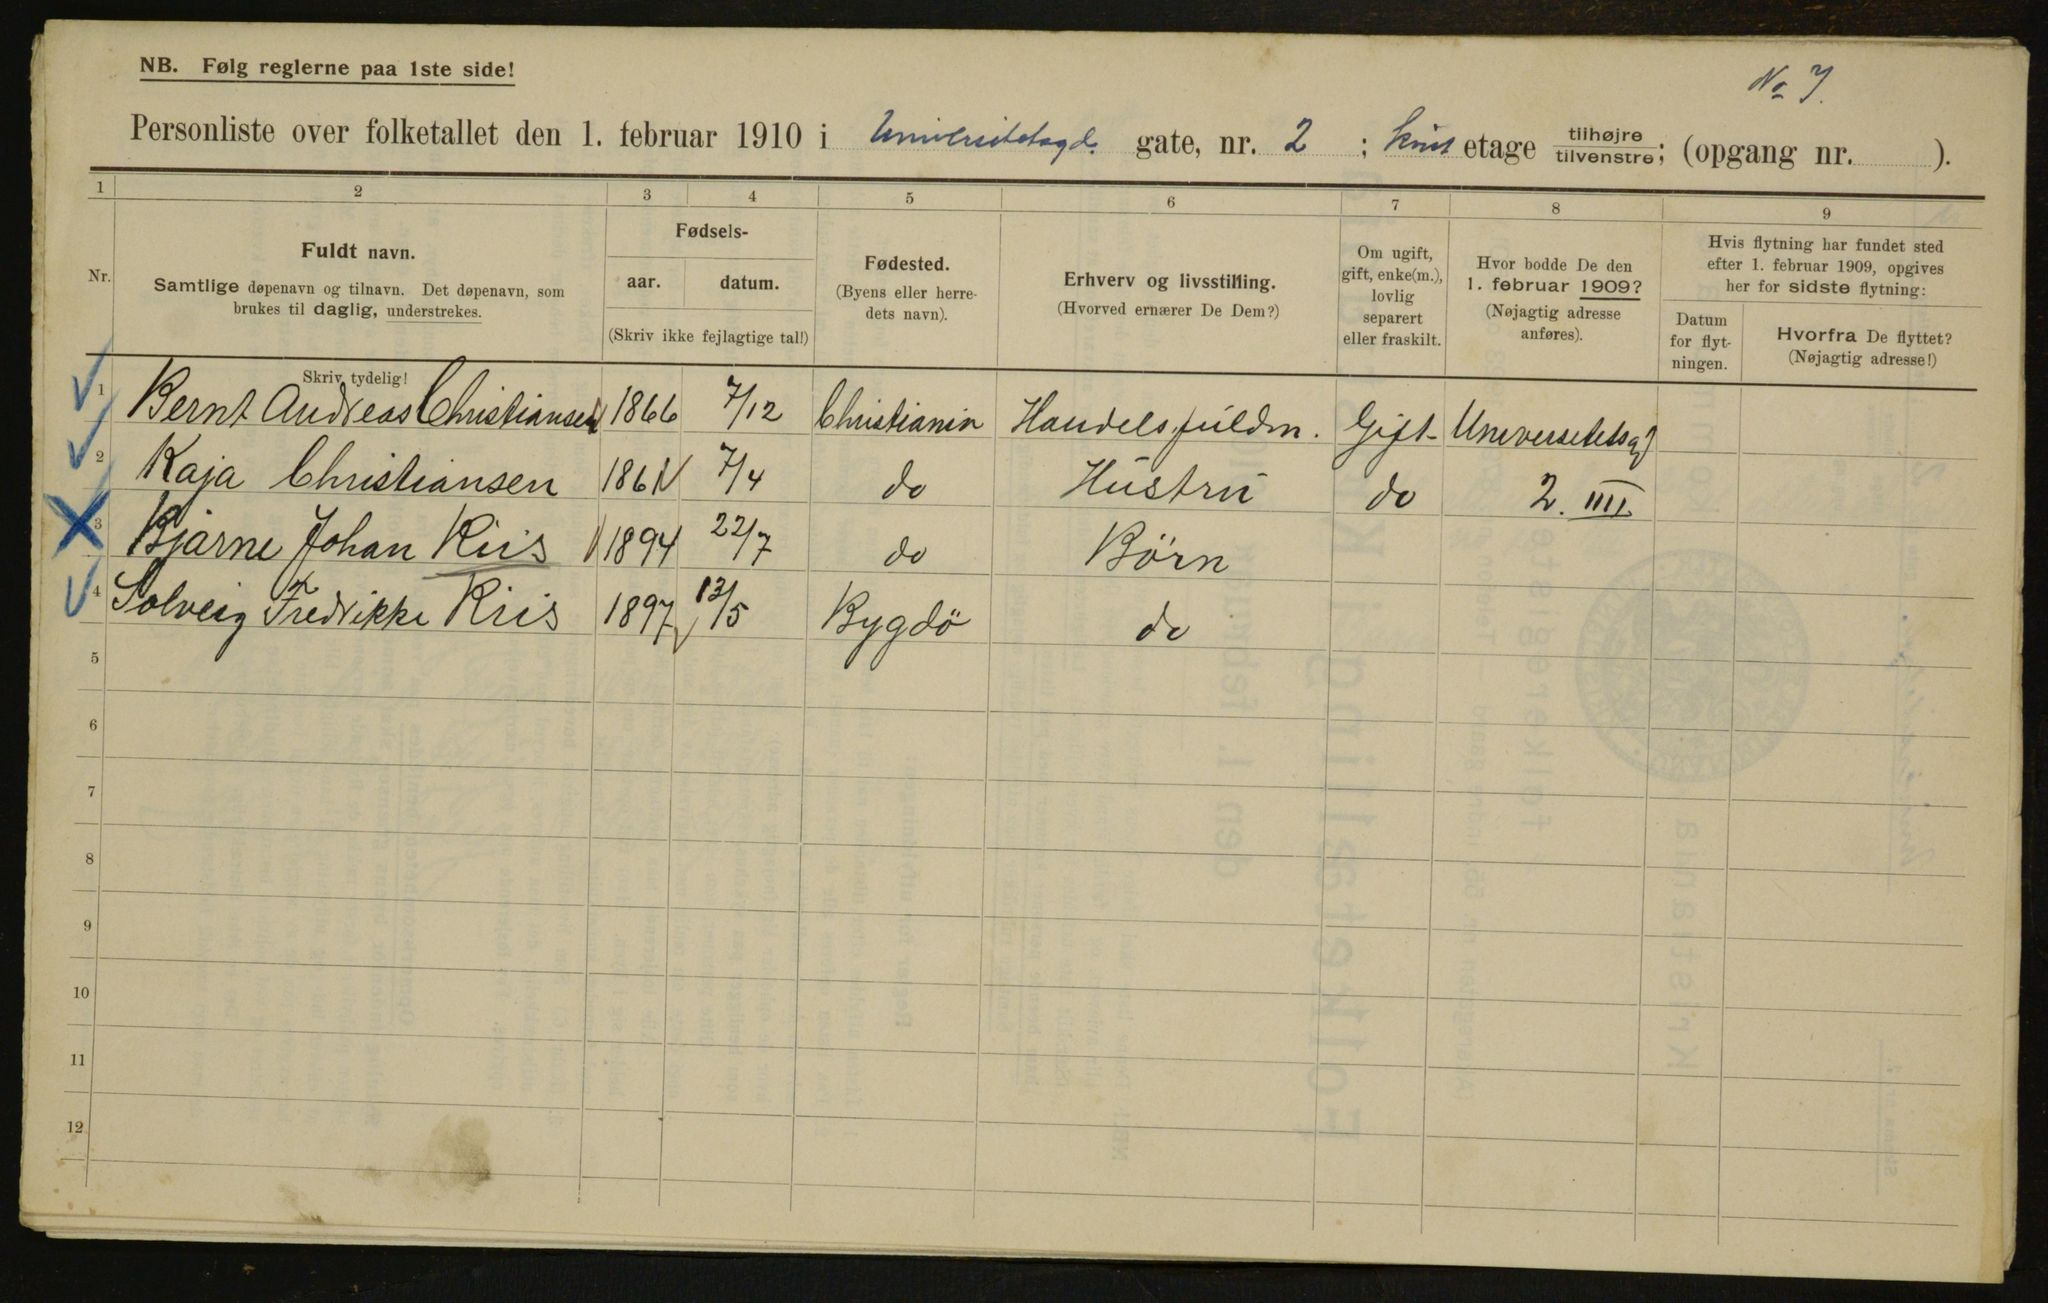 NB. Følg reglerne paa 1ste side!
No 7.
Personliste over folketallet den 1. februar 1910 i Universitetsgd. gate, nr. 2 ; kvist etage tilhøjre/tilvenstre; (opgang nr. ).
1 2 3 4 5 6 7 8 9
Nr.
Fuldt navn.
Samtlige døpenavn og tilnavn. Det døpenavn, som
brukes til daglig, understrekes.
Fødsels-
aar. datum.
(Skriv ikke fejlagtige tal!)
Fødested.
(Byens eller herre-
dets navn).
Erhverv og livsstilling.
(Hvorved ernærer De Dem?)
Om ugift,
gift, enke(m.),
lovlig
separert
eller fraskilt.
Hvor bodde De den
1. februar 1909?
(Nøjagtig adresse
anføres).
Hvis flytning har fundet sted
efter 1. februar 1909, opgives
her for sidste flytning:
Datum
for flyt-
ningen.
Hvorfra De flyttet?
(Nøjagtig adresse!)
Skriv tydelig!
1 Bernt Andreas Christiansen 1866 7/12 Christiania Handelsfuldm. Gift Universitetsgd
2 Kaja Christiansen 1861 7/4 do Hustru do 2. IIII
3 Bjarne Johan Riis 1894 22/7 do Børn
4 Solveig Fredrikke Riis 1897 13/5 Bygdö do
5
6
7
8
9
10
11
12